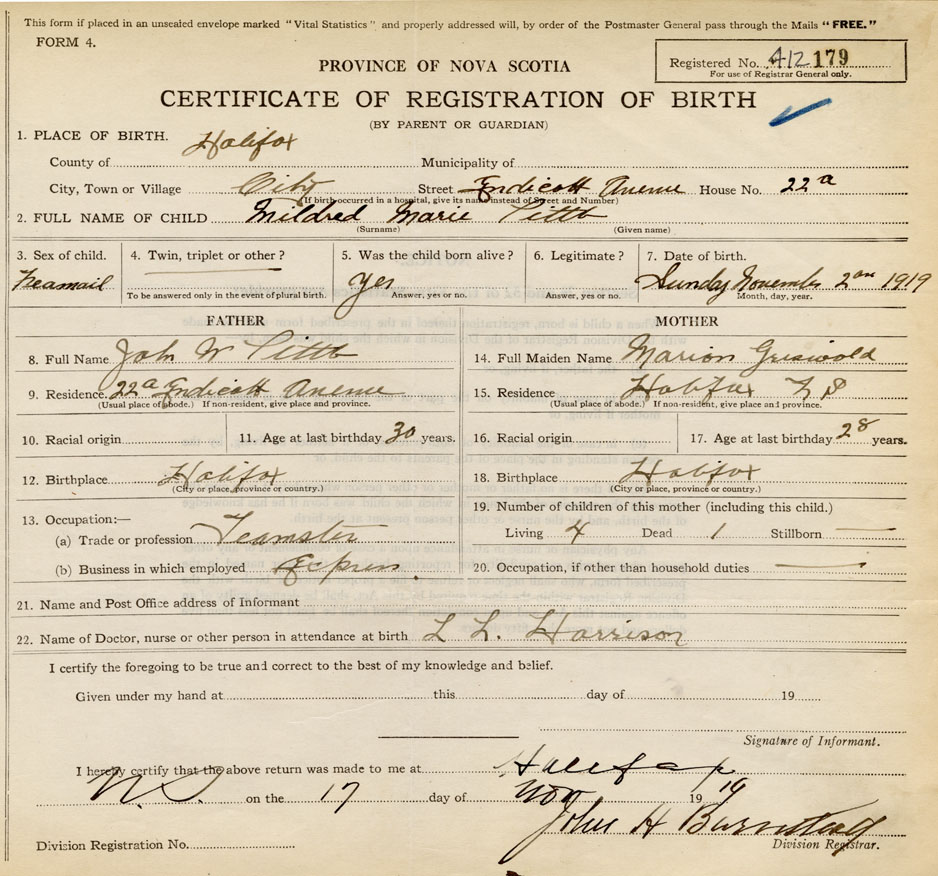 This form if placed in an unsealed envelope marked "Vital Statistics" and properly addressed will, by order of the Postmaster General pass through the Mails "FREE."
FORM 4.
Registered No. 412 179
For use of Registrar General only.
PROVINCE OF NOVA SCOTIA
CERTIFICATE OF REGISTRATION OF BIRTH
(BY PARENT OR GUARDIAN)
1. PLACE OF BIRTH.
County of Halifax Municipality of
City, Town or Village City Street Endicott Avenue House No. 22 a
(If birth occurred in a hospital, give its name instead of Street and Number)
2. FULL NAME OF CHILD Mildred Marie
(Surname) (Given name)
3. Sex of child. 4. Twin, triplet or other? 5. Was the child born alive? 6. Legitimate? 7. Date of birth.
Feamail yes Sunday November 2 1919
To be answered only in the event of plural birth. Answer, yes or no. Answer, yes or no. Month, day, year.
FATHER MOTHER
8. Full Name John W 14. Full Maiden Name Marion Griswold
9. Residence. 22 a Endicott Avenue 15. Residence Halifax N S
(Usual place of abode.) If non-resident, give place and province. (Usual place of abode.) If non-resident, give place and province.
10. Racial origin 11. Age at last birthday 30 years. 16. Racial origin 17. Age at last birthday 28 years.
12. Birthplace Halifax 18. Birthplace Halifax
(City or place, province or country.) (City or place, province or country.)
13. Occupation:— 19. Number of children of this mother (including this child.)
(a) Trade or profession Teamster Living 4 Dead 1 Stillborn
(b) Business in which employed Express 20. Occupation, if other than household duties
21. Name and Post Office address of Informant
22. Name of Doctor, nurse or other person in attendance at birth L L. Harrison
I certify the foregoing to be true and correct to the best of my knowledge and belief.
Given under my hand at this day of 19
Signature of Informant.
I hereby certify that the above return was made to me at Halifax
N.S. on the 17 day of Nov 19 19
John H
Division Registration No. Division Registrar.